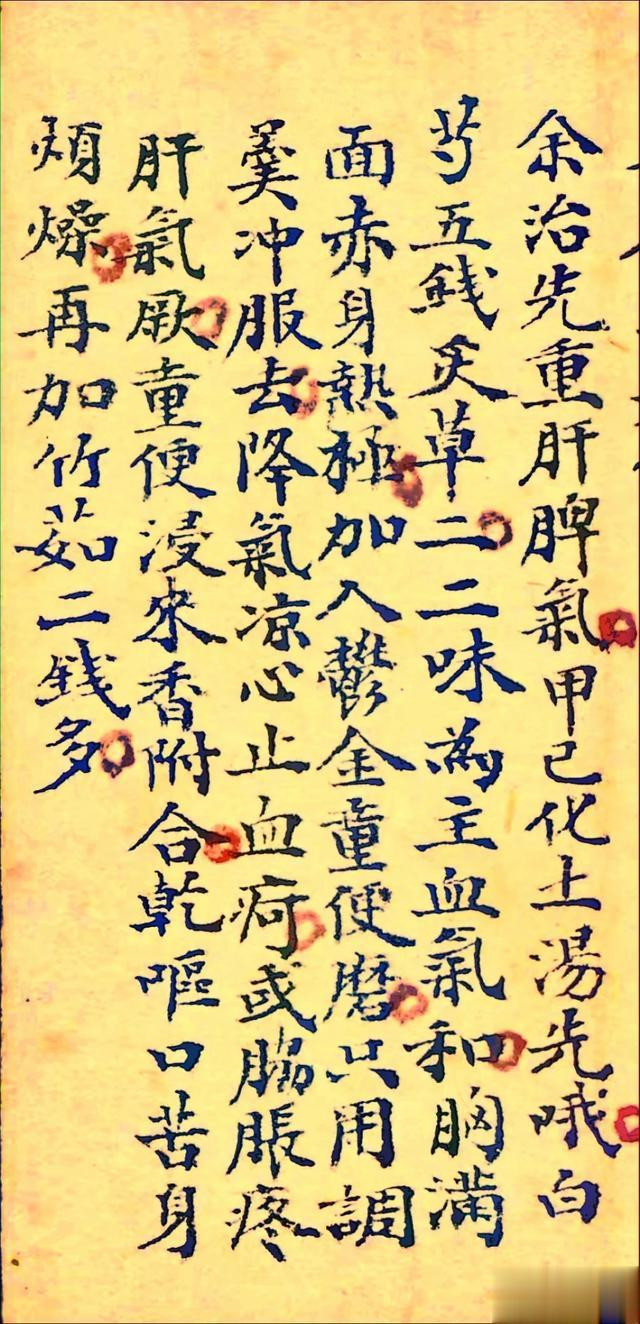 余治先重肝脾氣甲己化土湯先哦白
芍五錢炙草二二味為主血氣和胸满
面赤身熱極加入鬱金童便磨只用調
羹冲服去降氣凉心止血疴或脇脹疼
肝氣厥童便浸來香附合乾嘔口苦身
煩燥再加竹茹二錢多